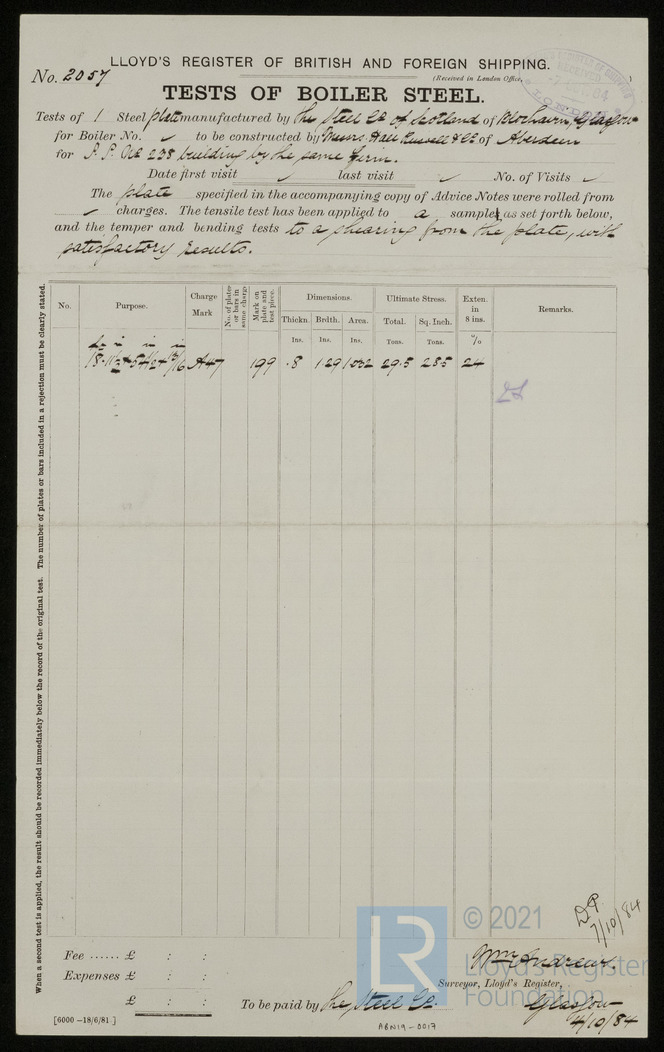 LLOYD'S REGISTER OF BRITISH AND FOREIGN SHIPPING.
No. 2057
(Received in London Office, )
TESTS OF BOILER STEEL.
Tests of 1 Steel plate manufactured by the Steel Co of Scotland of Blochairn, Glasgow
for Boiler No. ✓ to be constructed by Messrs. Hall Russell & Co of Aberdeen
for S.S. No 238 building by the same firm.
Date first visit ✓ last visit ✓ No. of Visits ✓
The plate specified in the accompanying copy of Advice Notes were rolled from
✓ charges. The tensile test has been applied to a samples as set forth below,
and the temper and bending tests to a shearing from the plate, with
satisfactory results.
No. Purpose. Charge Mark No. of plates or bars in same charge Mark on plate and test piece. Dimensions. Ultimate Stress. Exten. in 8 ins. Remarks.
Thickn. Brdth. Area. Total. Sq. Inch.
Ins. Ins. Ins. Tons. Tons. %
A47 199 .8 1.29 1.032 29.5 28.5 24
When a second test is applied, the result should be recorded immediately below the record of the original test. The number of plates or bars included in a rejection must be clearly stated.
7/10/84
LR © 2021
Lloyd's Register
Foundation
Fee ...... £ : :
Wm Andrews.
Expenses £ : :
Surveyor, Lloyd's Register,
£ : :
To be paid by the Steel Co.
Glasgow
4/10/84
[6000 -18/6/81.]
ABN19-0017